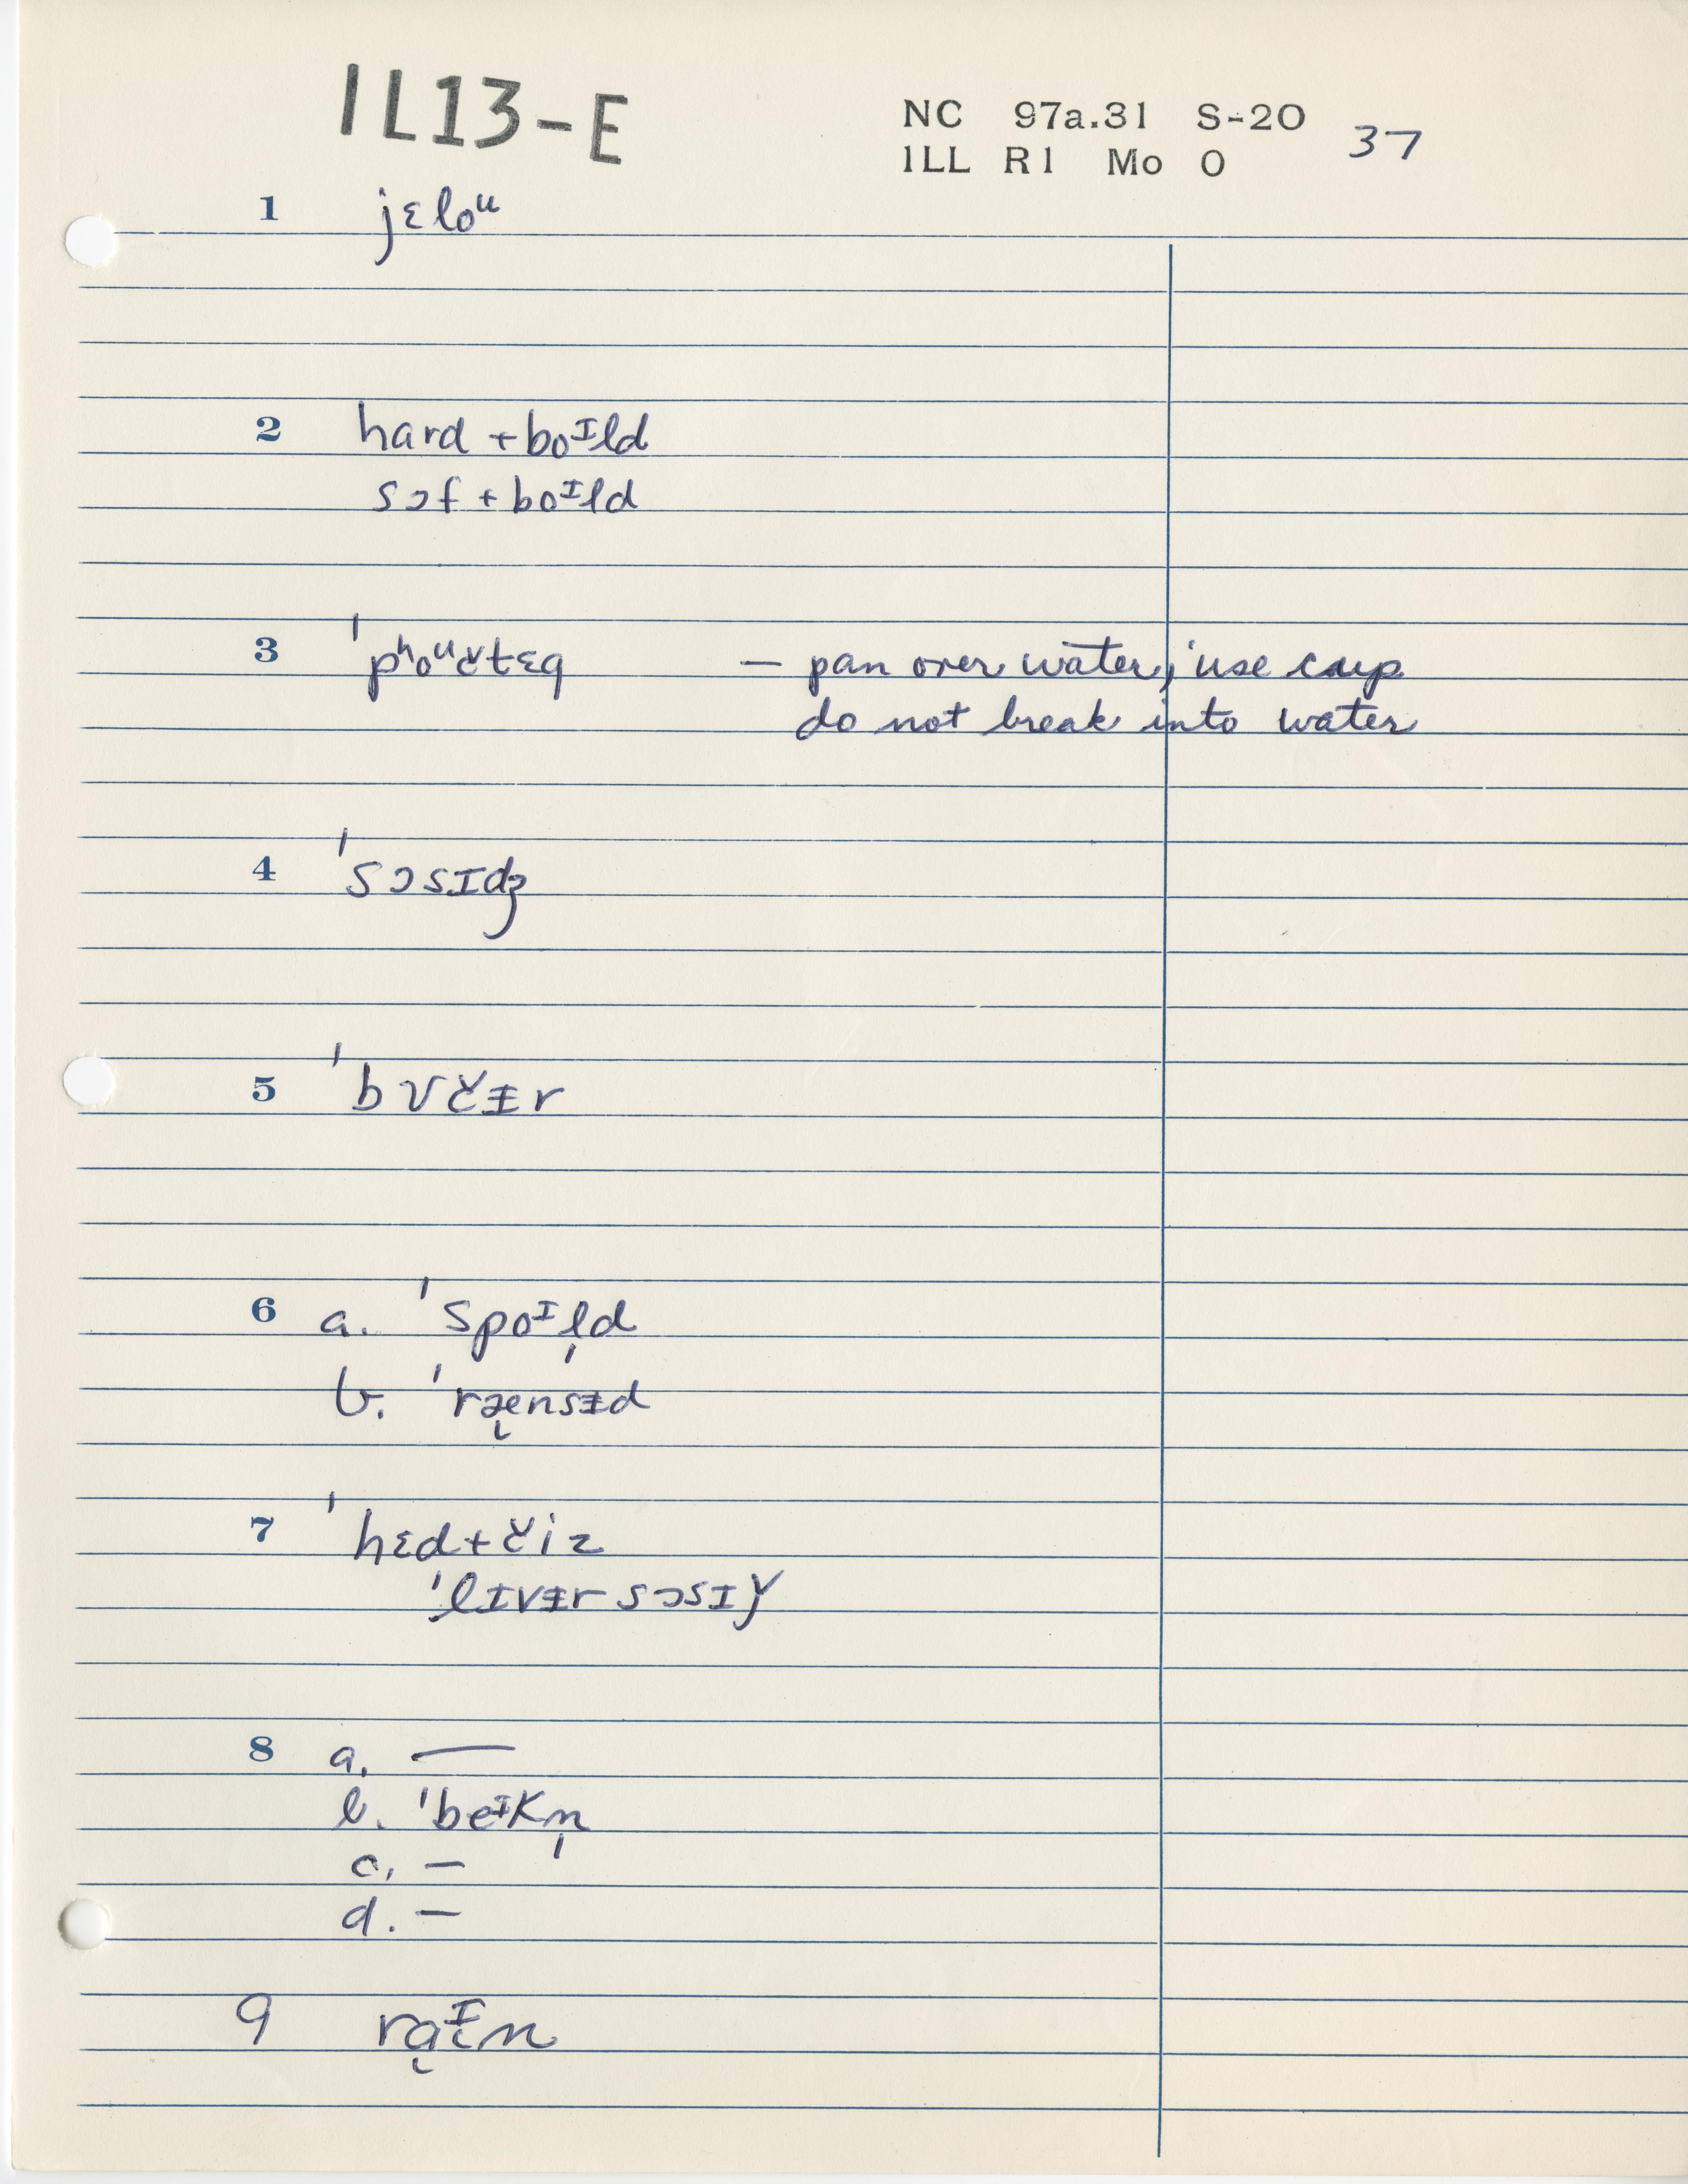 IL13-E
NC 97a.31 S-20 37
ILL R1 Mo O
1 jɛloᵘ
2 hard + boᴵld
sɔf + boᴵld
3 ˈpʰoᵘč̣tɛg — pan over water; use cup
do not break into water
4 ˈsɔsɪdʒ
5 ˈbʊčɨr
6 a. ˈspoᴵl̩d
b. ˈræ̨nsɨd
7 ˈhɛd + čiz
ˈlɪvɨr sɔsɪǰ
8 a. —
b. ˈbeᴵkn̩
c. —
d. —
9 rąᴵn